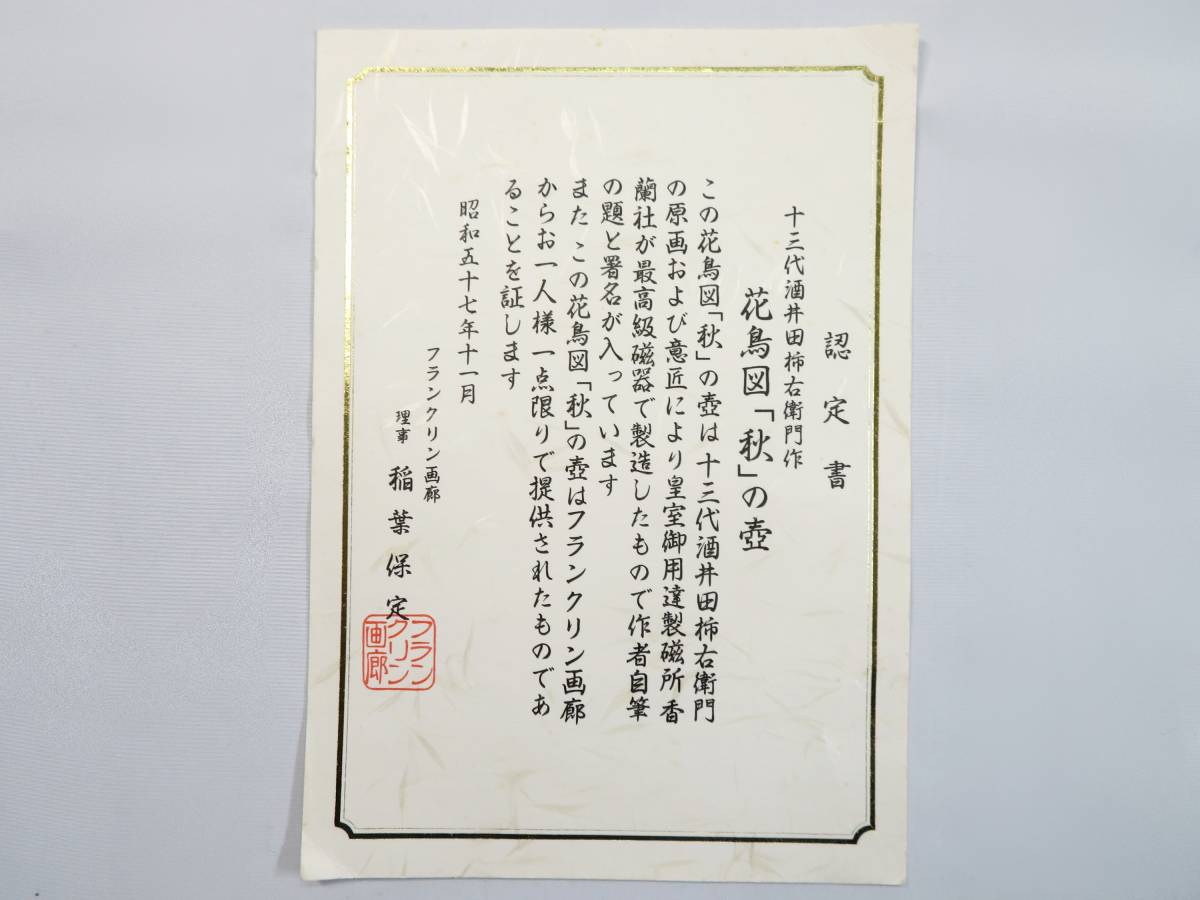 認定書
十三代酒井田柿右衛門作
花鳥図「秋」の壺
この花鳥図「秋」の壺は十三代酒井田柿右衛門
の原画および意匠により皇室御用達製磁所香
蘭社が最高級磁器で製造したもので作者自筆
の題と署名が入っています
また この花鳥図「秋」の壺はフランクリン画廊
からお一人様一点限りで提供されたものであ
ることを証します
昭和五十七年十一月
フランクリン画廊
理事 稲葉保定
フラン
クリン
画廊